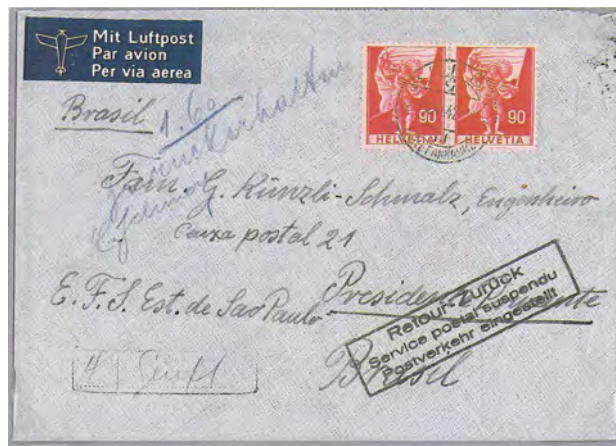 Mit Luftpost
Par avion
Per via aerea
90 90
HELVETIA HELVETIA
Brasil
1.60
Fam. G. Künzli-Schmalz, Engenheiro
Caixa postal 21
E.F.S. Est. de Sao Paulo
Presidente
Brasil
Retour-Zurück
Service postal suspendu
Postverkehr eingestellt
4